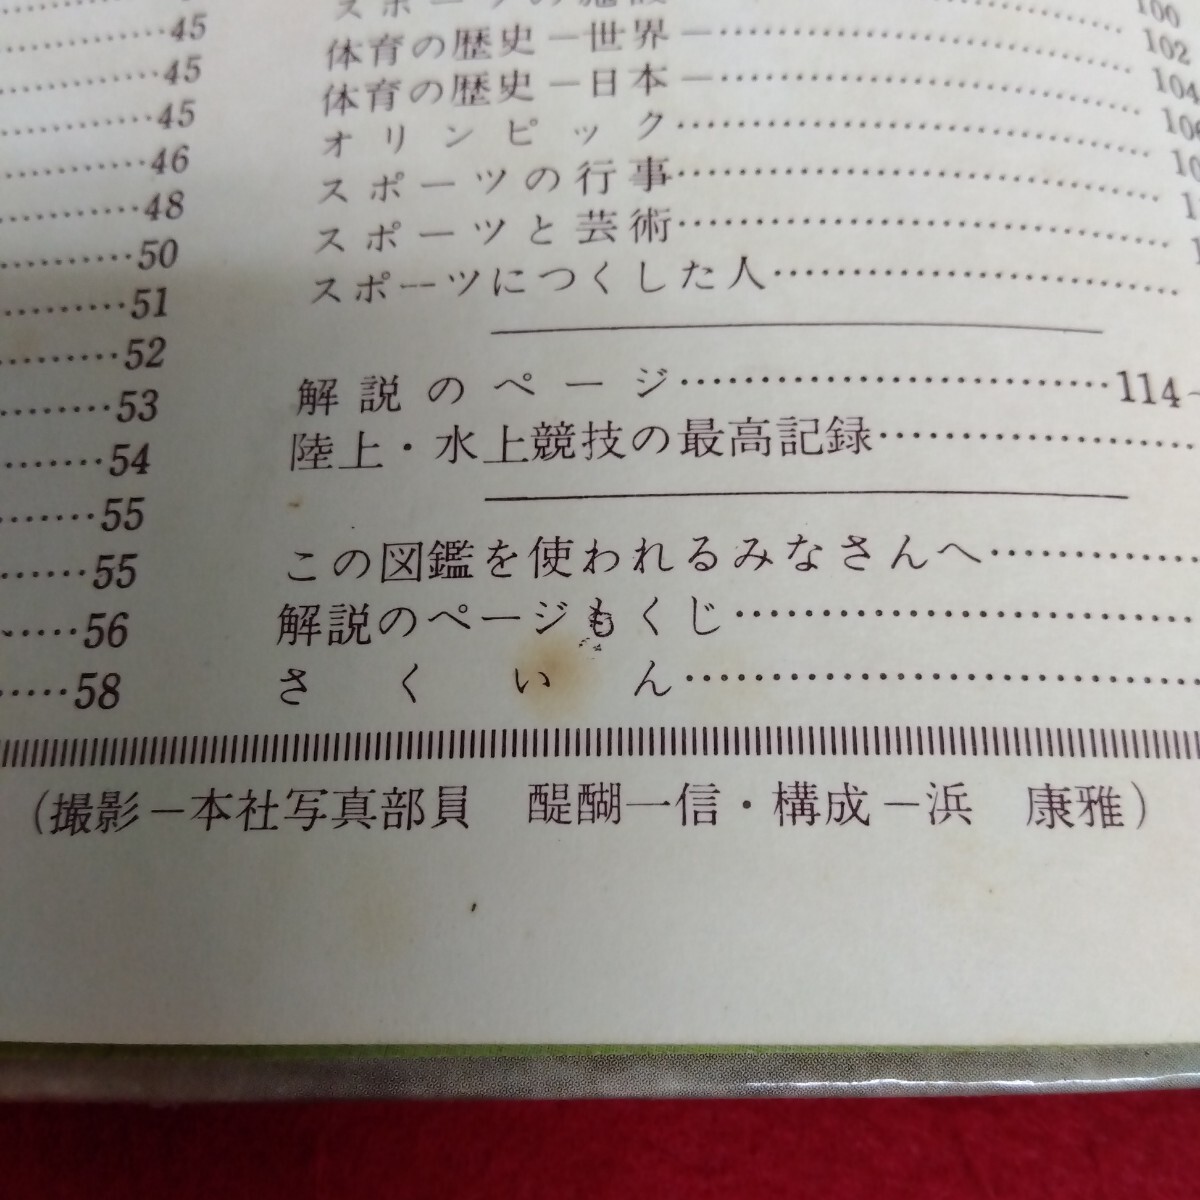 45
45
45
46
48
50
51
52
53
54
55
55
56
58
スポーツの施設 100
体育の歴史－世界－ 102
体育の歴史－日本－ 104
オリンピック
スポーツの行事
スポーツと芸術
スポーツにつくした人
解説のページ 114
陸上・水上競技の最高記録
この図鑑を使われるみなさんへ
解説のページもくじ
さくいん
(撮影－本社写真部員　醍醐一信・構成－浜　康雅)